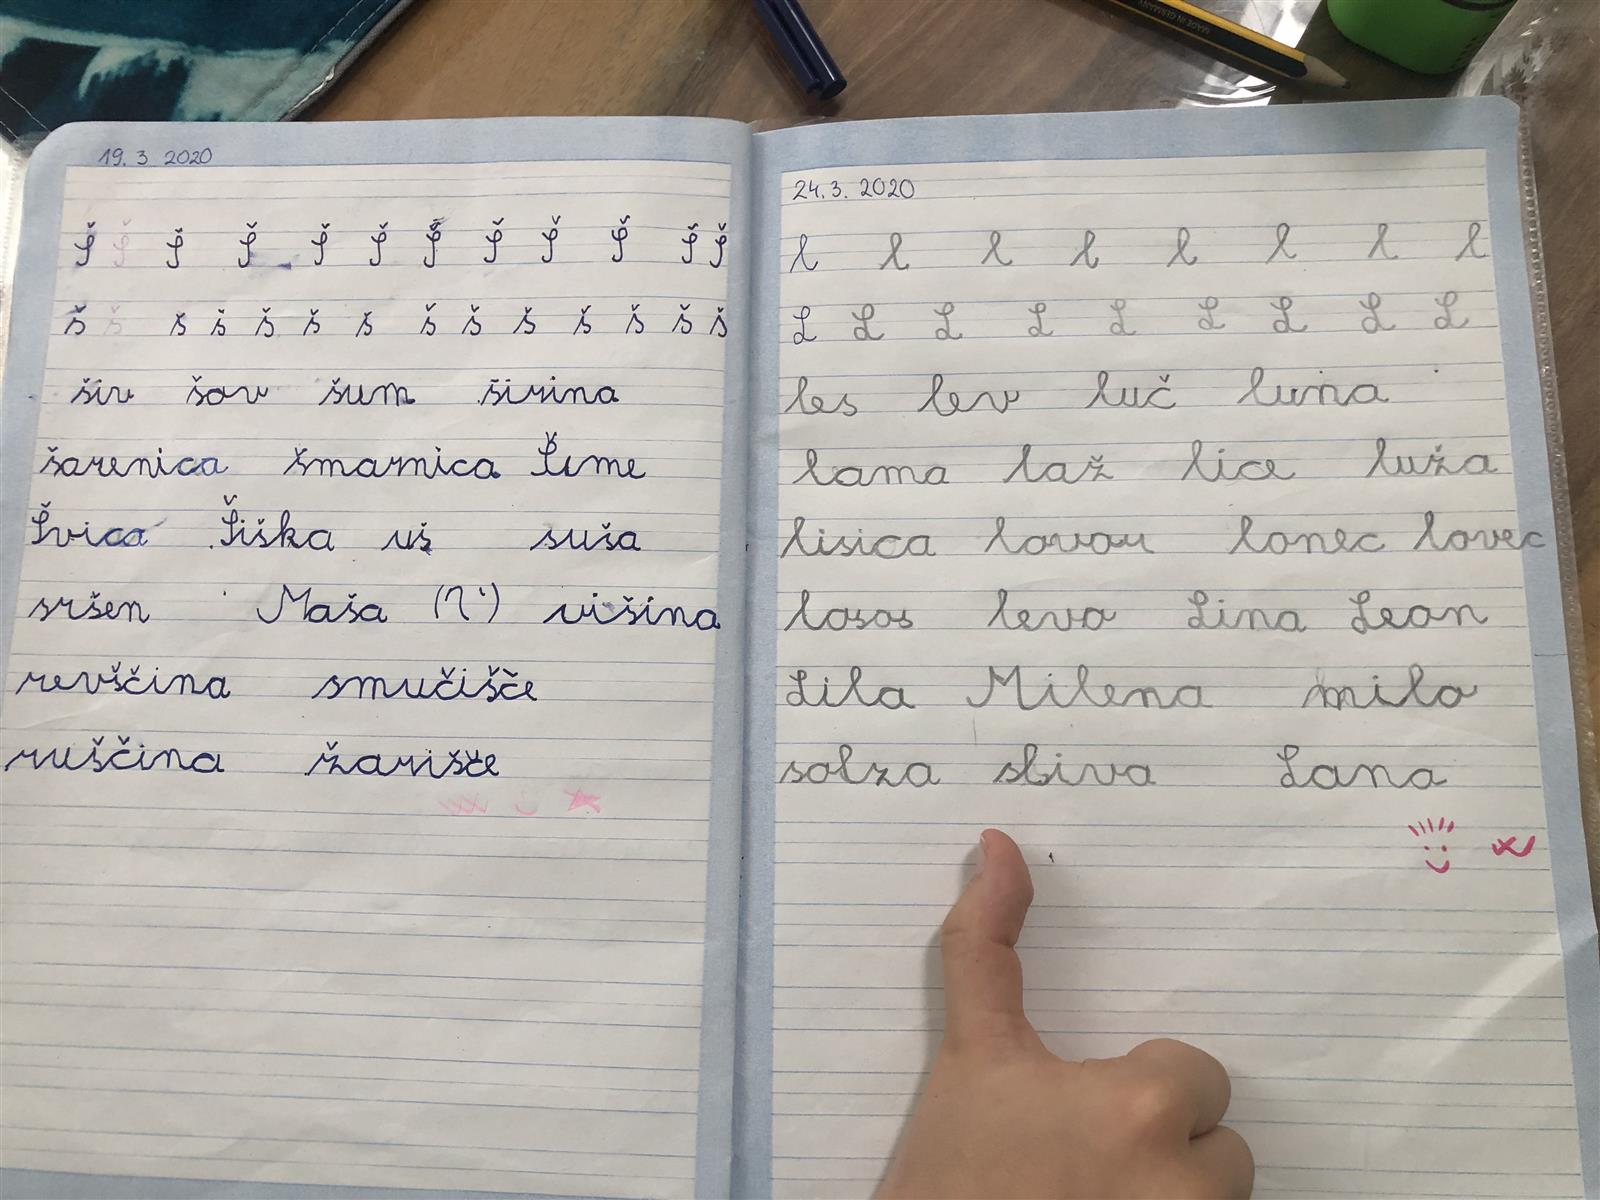 19. 3. 2020
Š Š Š Š Š Š Š Š Š Š Š Š
š š š š š š š š š š š š š š
šiv šav šum širina
šarenica šmarnica Šime
Švica Šiška uš suša
sršen Maša višina
revščina smučišče
ruščina žarišče
24. 3. 2020
l l l l l l l l
L L L L L L L L L
les lev luč luna
lama laž lice luža
lisica lovor lonec lovec
losos leva Lina Leon
Lila Milena milo
solza sliva Lana
MADE IN GERMANY